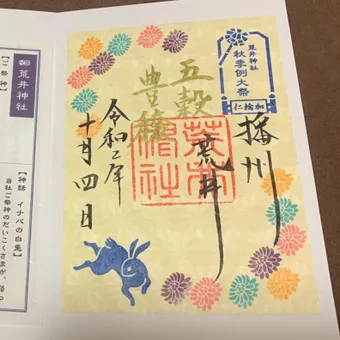 荒井神社
秋季例大祭
加検仁
播州
荒井
五穀
豊穣
令和二年
十月四日
荒井神社
【ご祭神】
【神話 イナバの白兎】
当社ご祭神のだいこくさまが、